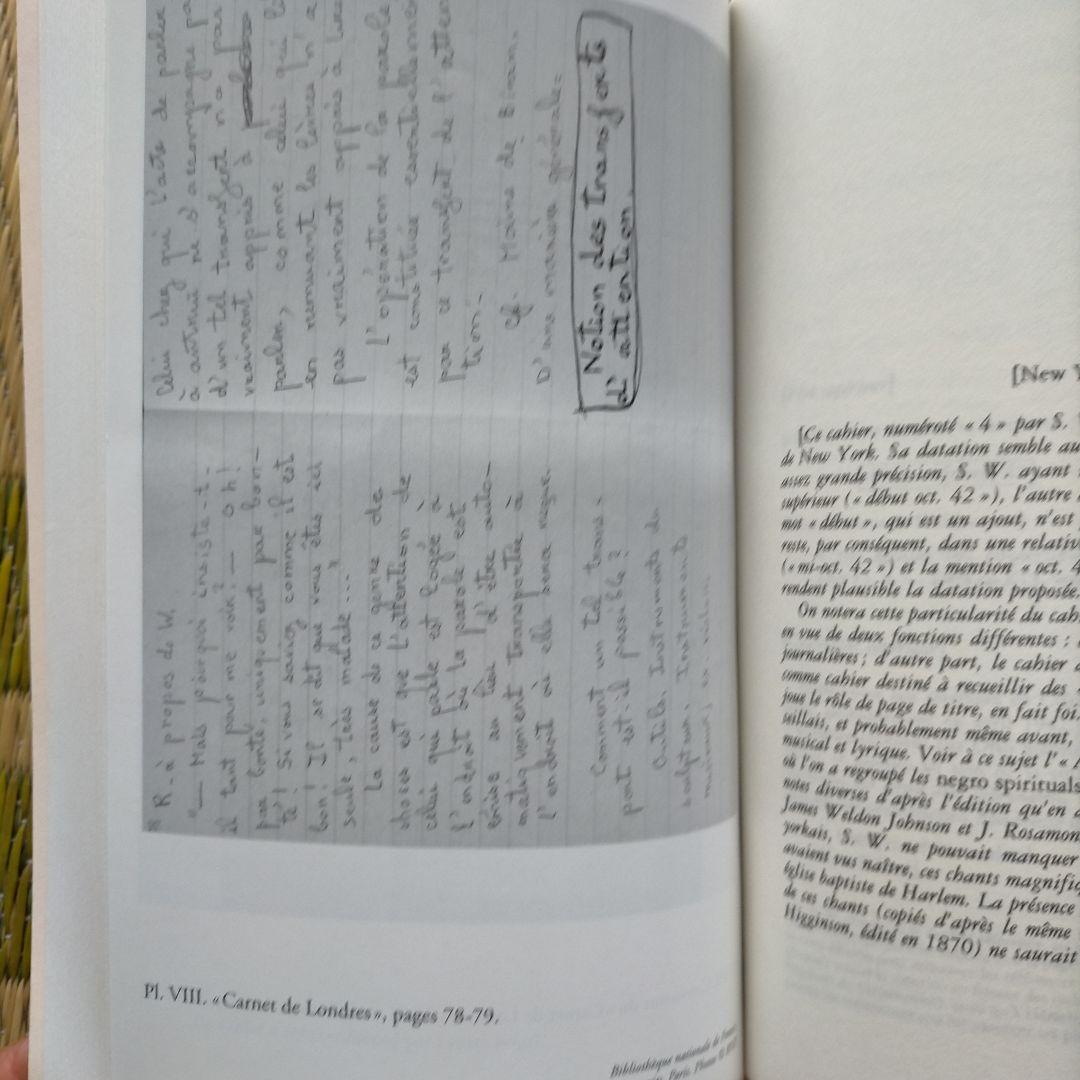 R. - à propos de W.
"— Mais pourquoi insiste-t-
il tant pour me voir? — Oh!
par bonté, uniquement par bon-
té! Si vous saviez comme il est
bon! Il se dit que vous êtes ici
seule, très malade..."
La cause de ce genre de
choses est que l'attention de
celui qui parle est logée à
l'endroit où la parole est
émise au lieu d'être auto-
matiquement transportée à
l'endroit où elle sera reçue.
Comment un tel trans-
port est-il possible?
Outils. Instruments du
sculpteur. Instruments
Celui chez qui l'acte de parler
à autrui ne s'accompagne pas
d'un tel transfert n'a pas
vraiment appris à
parler, comme celui qui lit
en remuant les lèvres n'a
pas vraiment appris à lire
L'opération de la parole
est constituée essentiellement
par ce transfert de l'atten
tion.-
Cf. Maine de Biran.
D'une manière générale:
Notion des transferts
d'attention.
Pl. VIII. «Carnet de Londres», pages 78-79.
Bibliothèque nationale de France
Paris. Photo ©
[New Y
[Ce cahier, numéroté « 4 » par S.
de New York. Sa datation semble au
assez grande précision, S. W. ayant
supérieur (« début oct. 42 »), l'autre
mot « début », qui est un ajout, n'est
reste, par conséquent, dans une relativ
(« mi-oct. 42 ») et la mention « oct. 4
rendent plausible la datation proposée.
On notera cette particularité du cah
en vue de deux fonctions différentes :
journalières ; d'autre part, le cahier
comme cahier destiné à recueillir des
joue le rôle de page de titre, en fait foi.
seillais, et probablement même avant,
musical et lyrique. Voir à ce sujet l'« A
où l'on a regroupé les negro spirituals
notes diverses d'après l'édition qu'en
James Weldon Johnson et J. Rosamon
yorkais, S. W. ne pouvait manquer
avaient vus naître, ces chants magnifiq
église baptiste de Harlem. La présence
de ces chants (copiés d'après le même
Higginson, édité en 1870) ne saurait